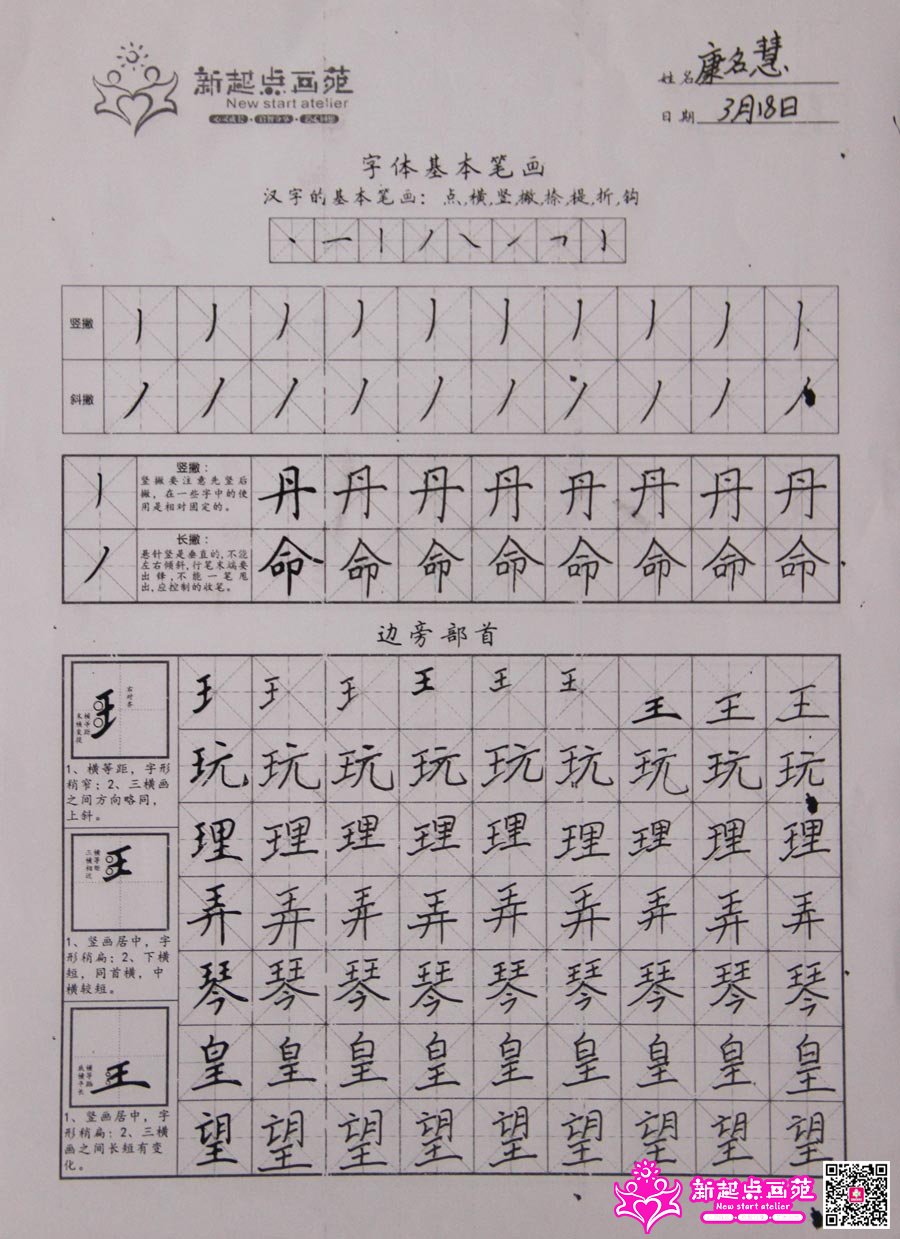 新起点画苑
New start atelier
姓名 康名慧
日期 3月18日
字体基本笔画
汉字的基本笔画：点,横,竖,撇,捺,提,折,钩
竖撇
斜撇
竖撇：
竖撇要注意先竖后
撇，在一些字中的使
用是相对固定的。
丹丹丹丹丹丹丹丹
长撇：
悬针竖是垂直的,不能
左右倾斜,行笔末端要
出锋,不能一笔甩
出,应控制的收笔。
命命命命命命命命
边旁部首
右对齐
横等距
末横变提
1、横等距，字形
稍窄；2、三横画
之间方向略同，
上斜。
横等距
三横相近
1、竖画居中，字
形稍扁；2、下横
短，同首横，中
横较短。
横等距
底横平长
1、竖画居中，字
形稍扁；2、三横
画之间长短有变
化。
王王王王王王王王王
玩玩玩玩玩玩玩玩玩
理理理理理理理理理
弄弄弄弄弄弄弄弄弄
琴琴琴琴琴琴琴琴琴
皇皇皇皇皇皇皇皇皇
望望望望望望望望望
新起点画苑
New start atelier